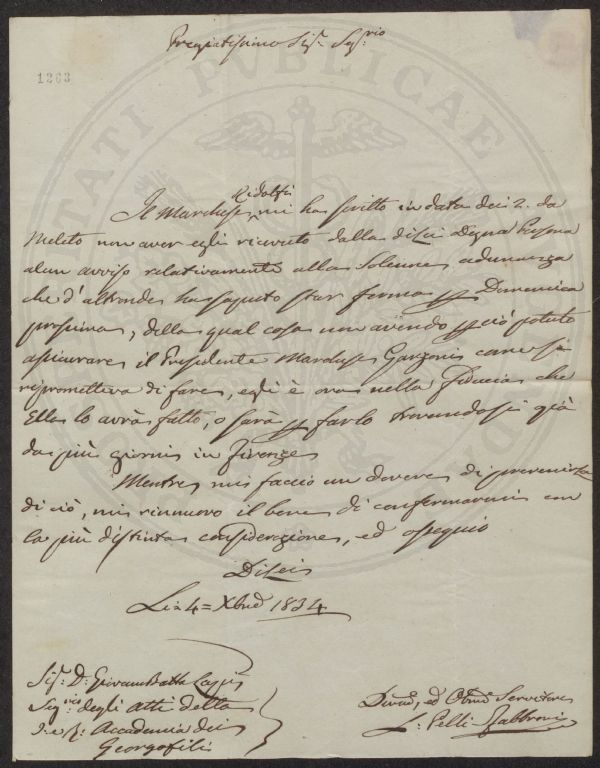 Pregiatissimo Sigr. Segrio
1263
PROSPERITATI PVBLICAE
Ridolfi
Il Marchese mi ha scritto in data dei 2. da
Meleto non aver egli ricevuto dalla di Lei Degna Persona
alcun avviso relativamente alla Solenne adunanza
che d'altronde ha saputo star ferma per Domenica
prossima, della qual cosa non avendo per ciò potuto
assicurare il Presidente Marchese Garzoni come si
riprometteva di fare, egli è ora nella fiducia che
Ella lo avrà fatto, o sarà per farlo trovandosi già
da più giorni in Firenze
Mentre mi faccio un dovere di prevenirla
di ciò, mi rinnuovo il bene di confermarmi con
la più distinta considerazione, ed ossequio
Di Lei
Li 4 = Xbre 1834
Sigr. Dr. Giovan Batta
Segrio degli Atti della
I. e R. Accademia dei
Georgofili
Devmo, ed Obbmo Servitore
L. Pelli Fabbroni